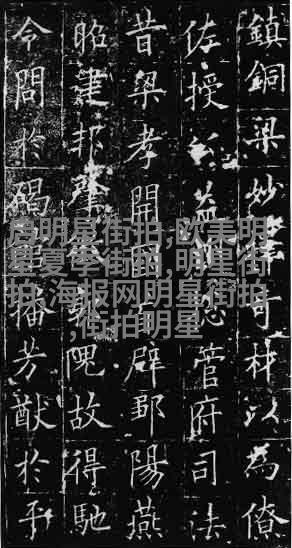 鎮銅梁妙奇材以為僚
佐授益管府司法
昔梁孝開國辟鄒陽燕
昭建邦肇隗故得馳
令問於碣播芳猷於平
明星街拍,欧美明
星夏季街拍,明星街
拍,海报网明星街拍
,街拍明星